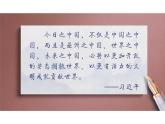 今日之中国，不仅是中国之中
国，而且是亚洲之中国、世界之中
国。未来之中国，必将以更加开放
的姿态拥抱世界、以更有活力的文
明成就贡献世界。
——习近平